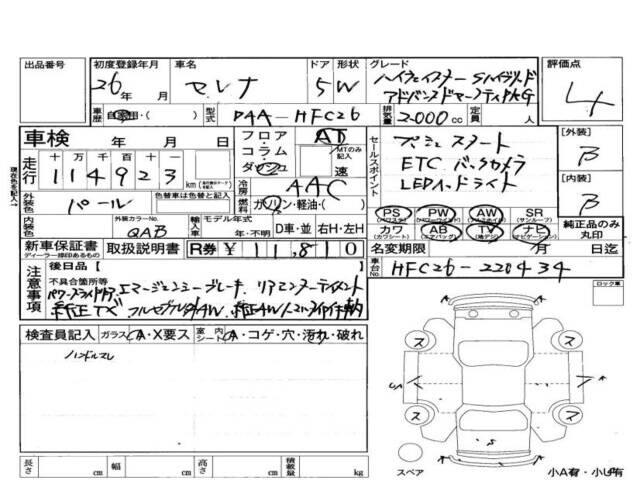 出品番号
初度登録年月 26年 月
車名 セレナ
ドア 5 形状 W
グレード ハイウェイスター Sハイブリッド アドバンスドセーフティPKG
評価点 4
車歴 自家用・( )
型式 DAA-HFC26
排気量 2000cc
定員 人
車検 年 月 日
走行 十万千百十 114923 km
フロア・コラム・ダッシュ
AT
MTのみ記入 速
セールスポイント
プッシュスタート
ETC バックカメラ
LEDヘッドライト
[外装] B
[内装] B
外装色 パール
色替車は色替と記入
冷房 AAC
燃料 ガソリン・軽油・( )
PS PW AW SR
(サンルーフ)
カワ AB TV ナビ
純正品のみ丸印
内装色
外装カラーNo. QAB
モデル年式 年・不明
輸入車 D車・並
右H・左H
新車保証書
ディーラー捺印あるもの
取扱説明書
R券 ¥ 11,810
名変期限 月 日迄
車台No. HFC26-220434
注意事項
後日品[ ]
不具合箇所等
エマージェンシーブレーキ
ロック車
検査員記入
ガラス A・X要ス
室内シート A・コゲ・穴・汚れ・破れ
ハンドルスレ
ス ス
ス ス
スペア
小A有・小U有
長さ cm 幅 cm 高さ cm 積載量 kg
現在色を記入→